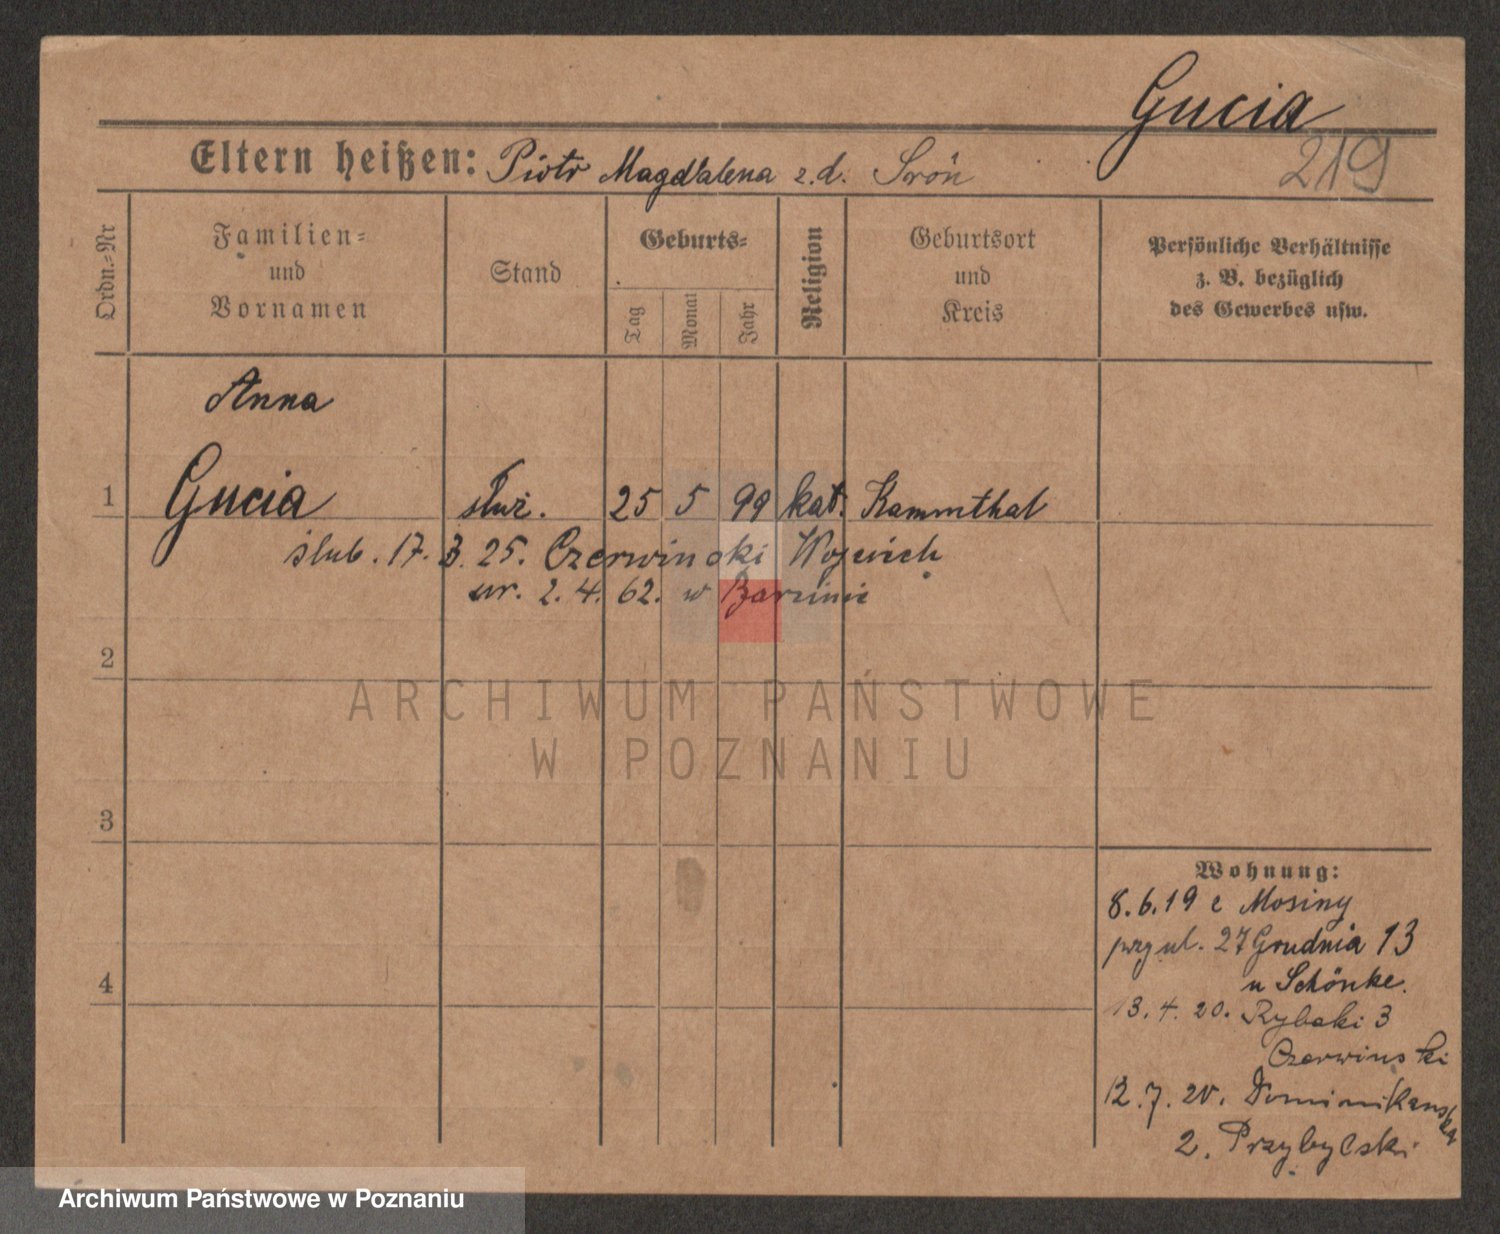 Gucia
219
Eltern heißen: Piotr Magdalena z.d. Srön
Ordn.-Nr
Familien-
und
Vornamen
Stand
Geburts-
Tag
Monat
Jahr
Religion
Geburtsort
und
Kreis
Persönliche Verhältnisse
z. B. bezüglich
des Gewerbes usw.
Anna
1 Gucia służ. 25 5 99 kat. Kammthal
ślub. 17. 3. 25. Czerwinski Wojciech
ur. 2. 4. 62. w
2
ARCHIWUM PAŃSTWOWE
W POZNANIU
3
4
Wohnung:
8.6.19 z Mosiny
przy ul. 27 Grudnia 13
u Schönke.
13. 4. 20. Rybaki 3
Czerwinski
12. 7. 20. Dominikanska
2. Przybylski
Archiwum Państwowe w Poznaniu